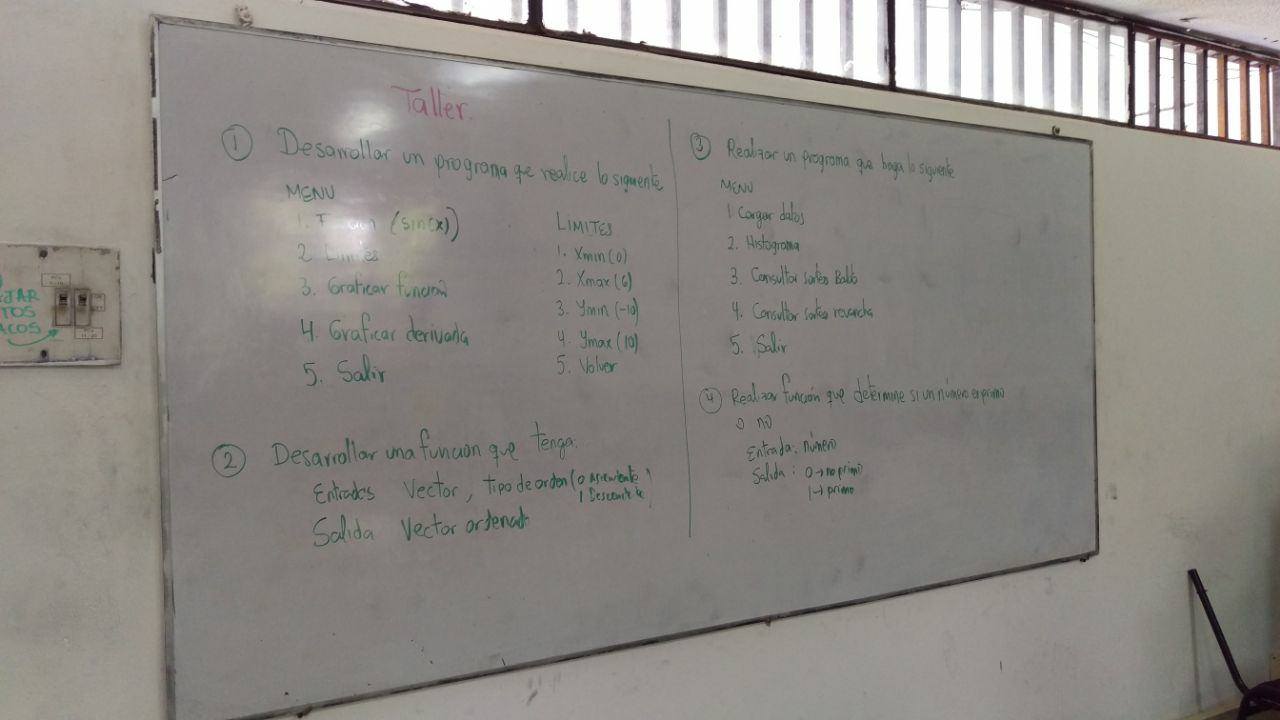 Taller.
① Desarrollar un programa que realice lo siguiente
MENU
1. (sin(x))
2. Limites
3. Graficar función
4. Graficar derivada
5. Salir
LIMITES
1. Xmin (0)
2. Xmax (6)
3. Ymin (-10)
4. Ymax (10)
5. Volver
② Desarrollar una función que tenga:
Entradas Vector, tipo de orden (0 Ascendente)
1 Descendente
Salida Vector ordenado
③ Realizar un programa que haga lo siguiente
MENU
1 Cargar datos
2. Histograma
3. Consultar sorteo Baloto
4. Consultar sorteo revancha
5. Salir
④ Realizar función que determine si un número es primo
o no
Entrada: número
Salida: 0→ no primo
1→ primo
JAR
TOS
ACOS